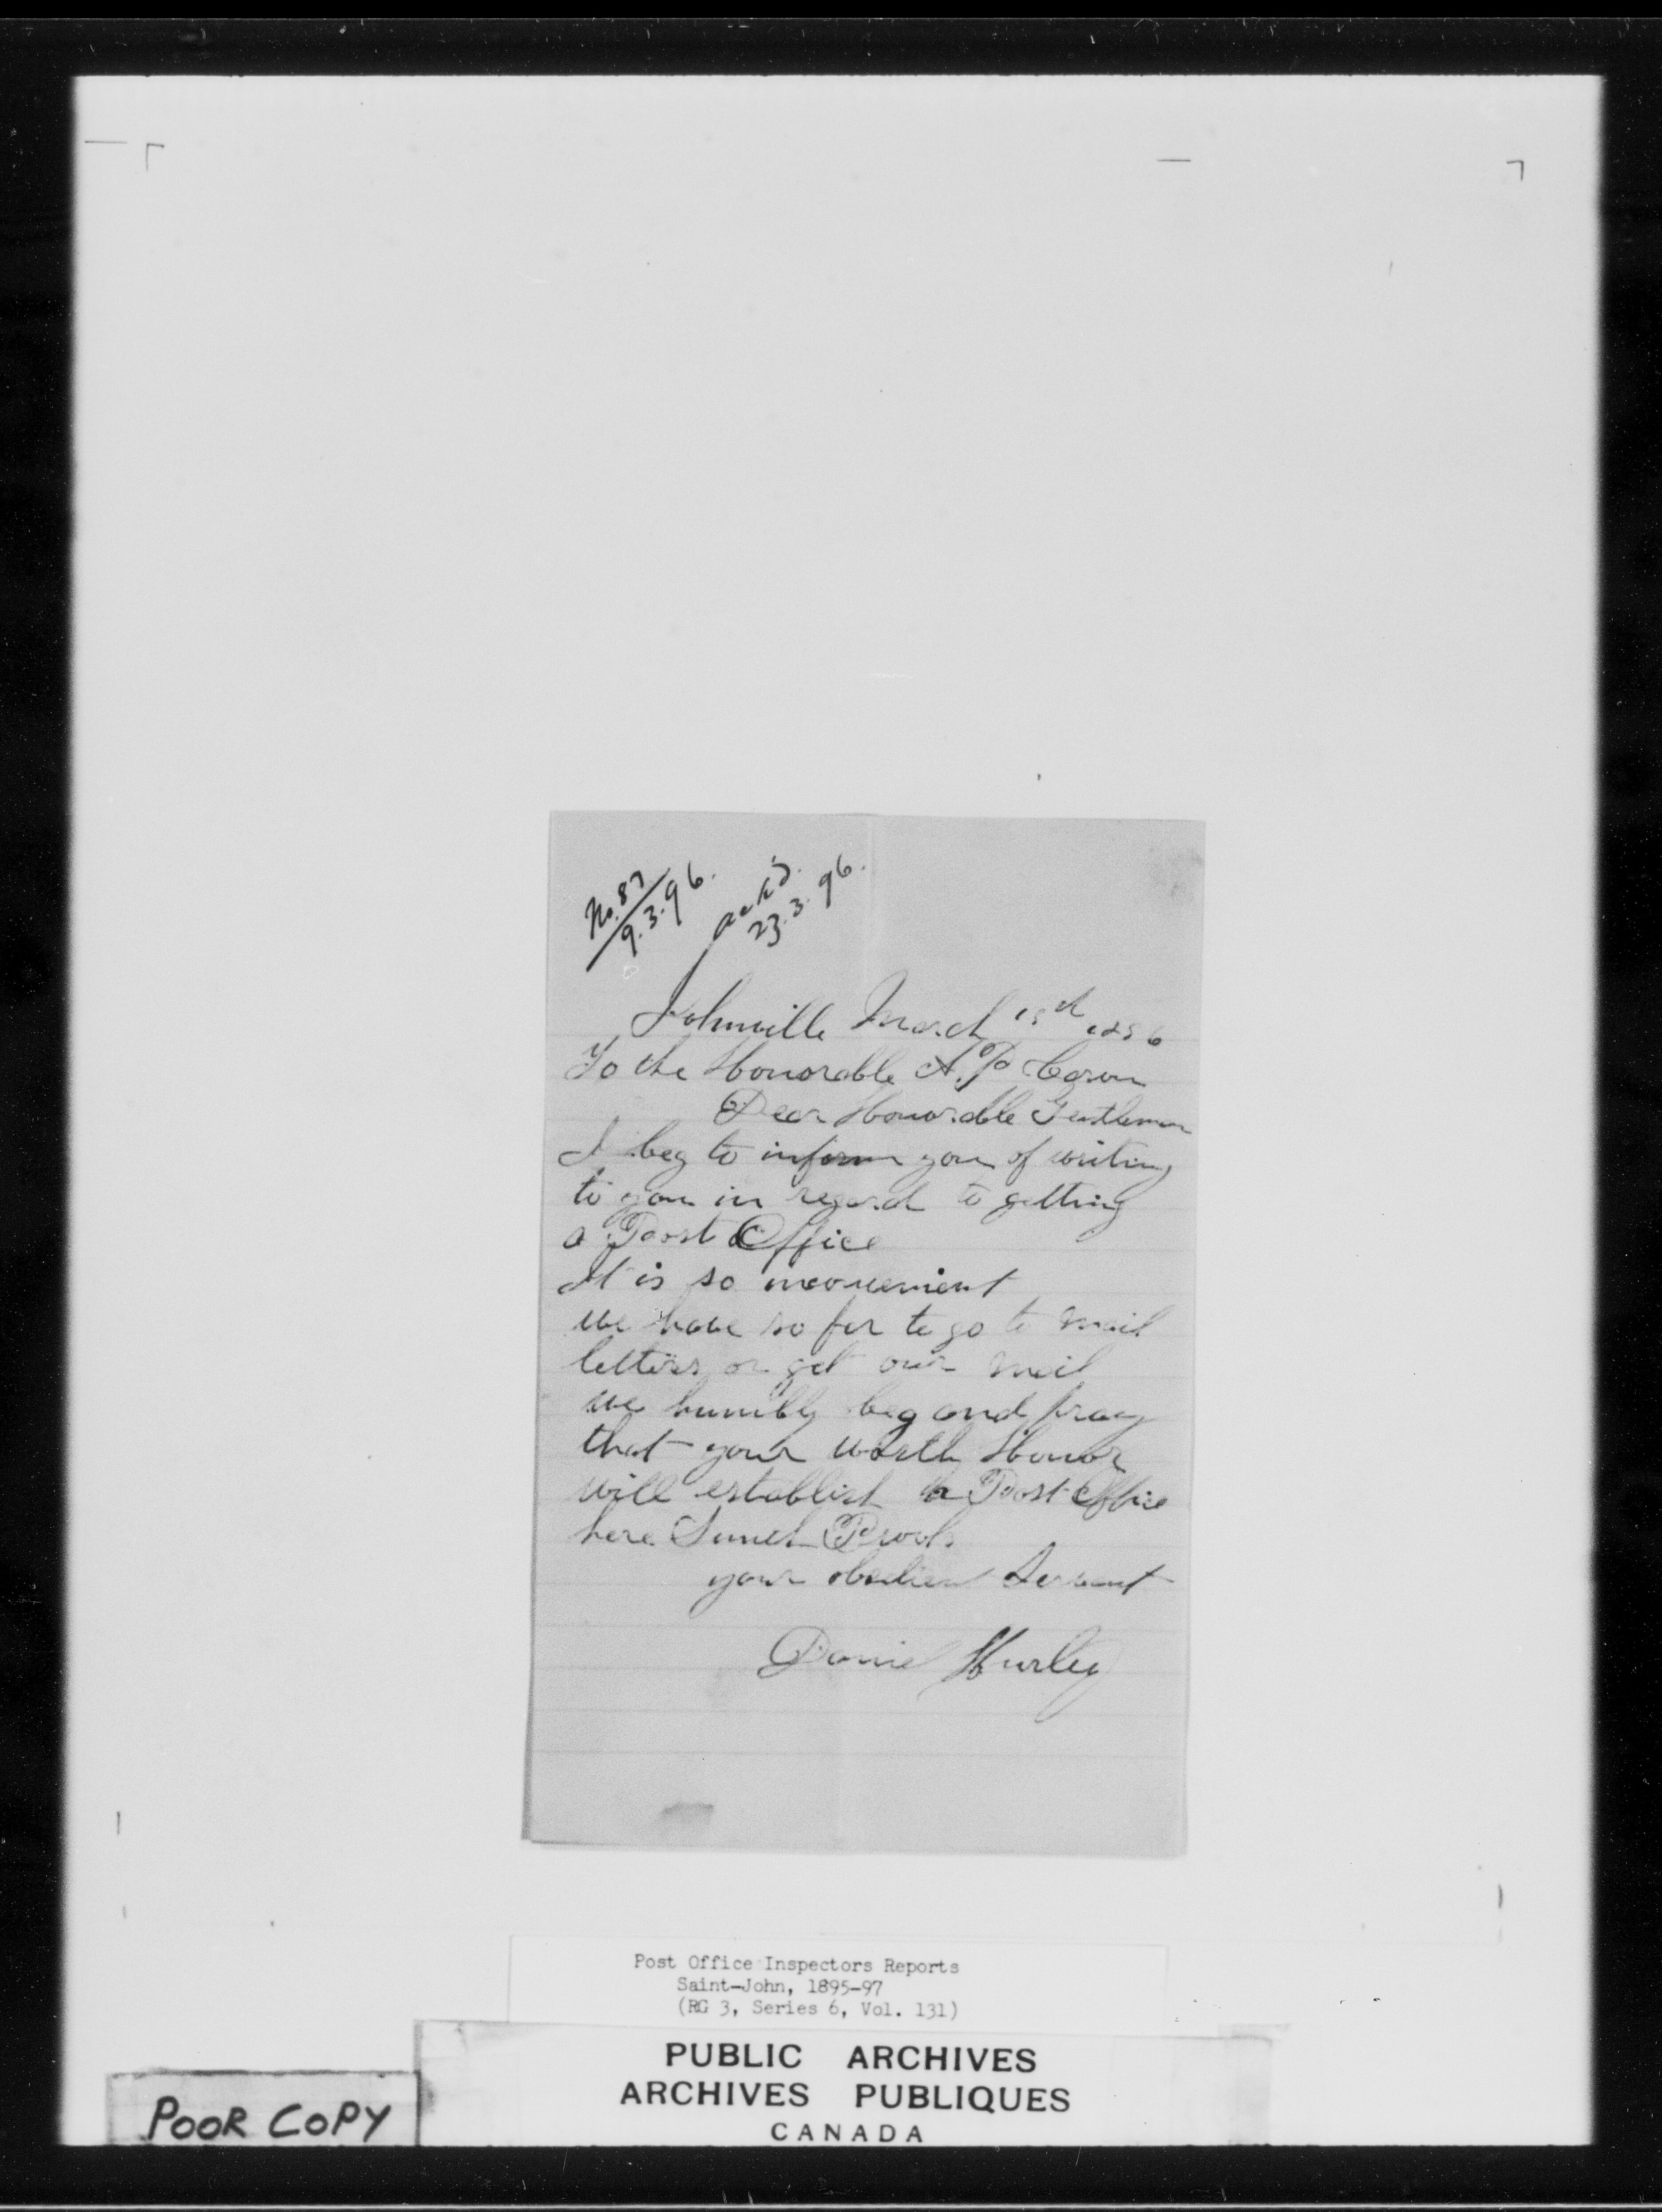 No. 87
9.3.96.
ack'd.
23.3.96.
Johnville March 15th 1896
To the Honorable A. P. Caron
Dear Honorable Gentleman
I beg to inform you of writing
to you in regard to getting
a Post Office
It is so inconvenient
we have so far to go to mail
letters or get our mail
we humbly beg and pray
that your worth Honor
will establish a Post Office
here
your obedient Servant
Daniel Hurley
Post Office Inspectors Reports
Saint-John, 1895-97
(RG 3, Series 6, Vol. 131)
PUBLIC ARCHIVES
ARCHIVES PUBLIQUES
CANADA
POOR COPY